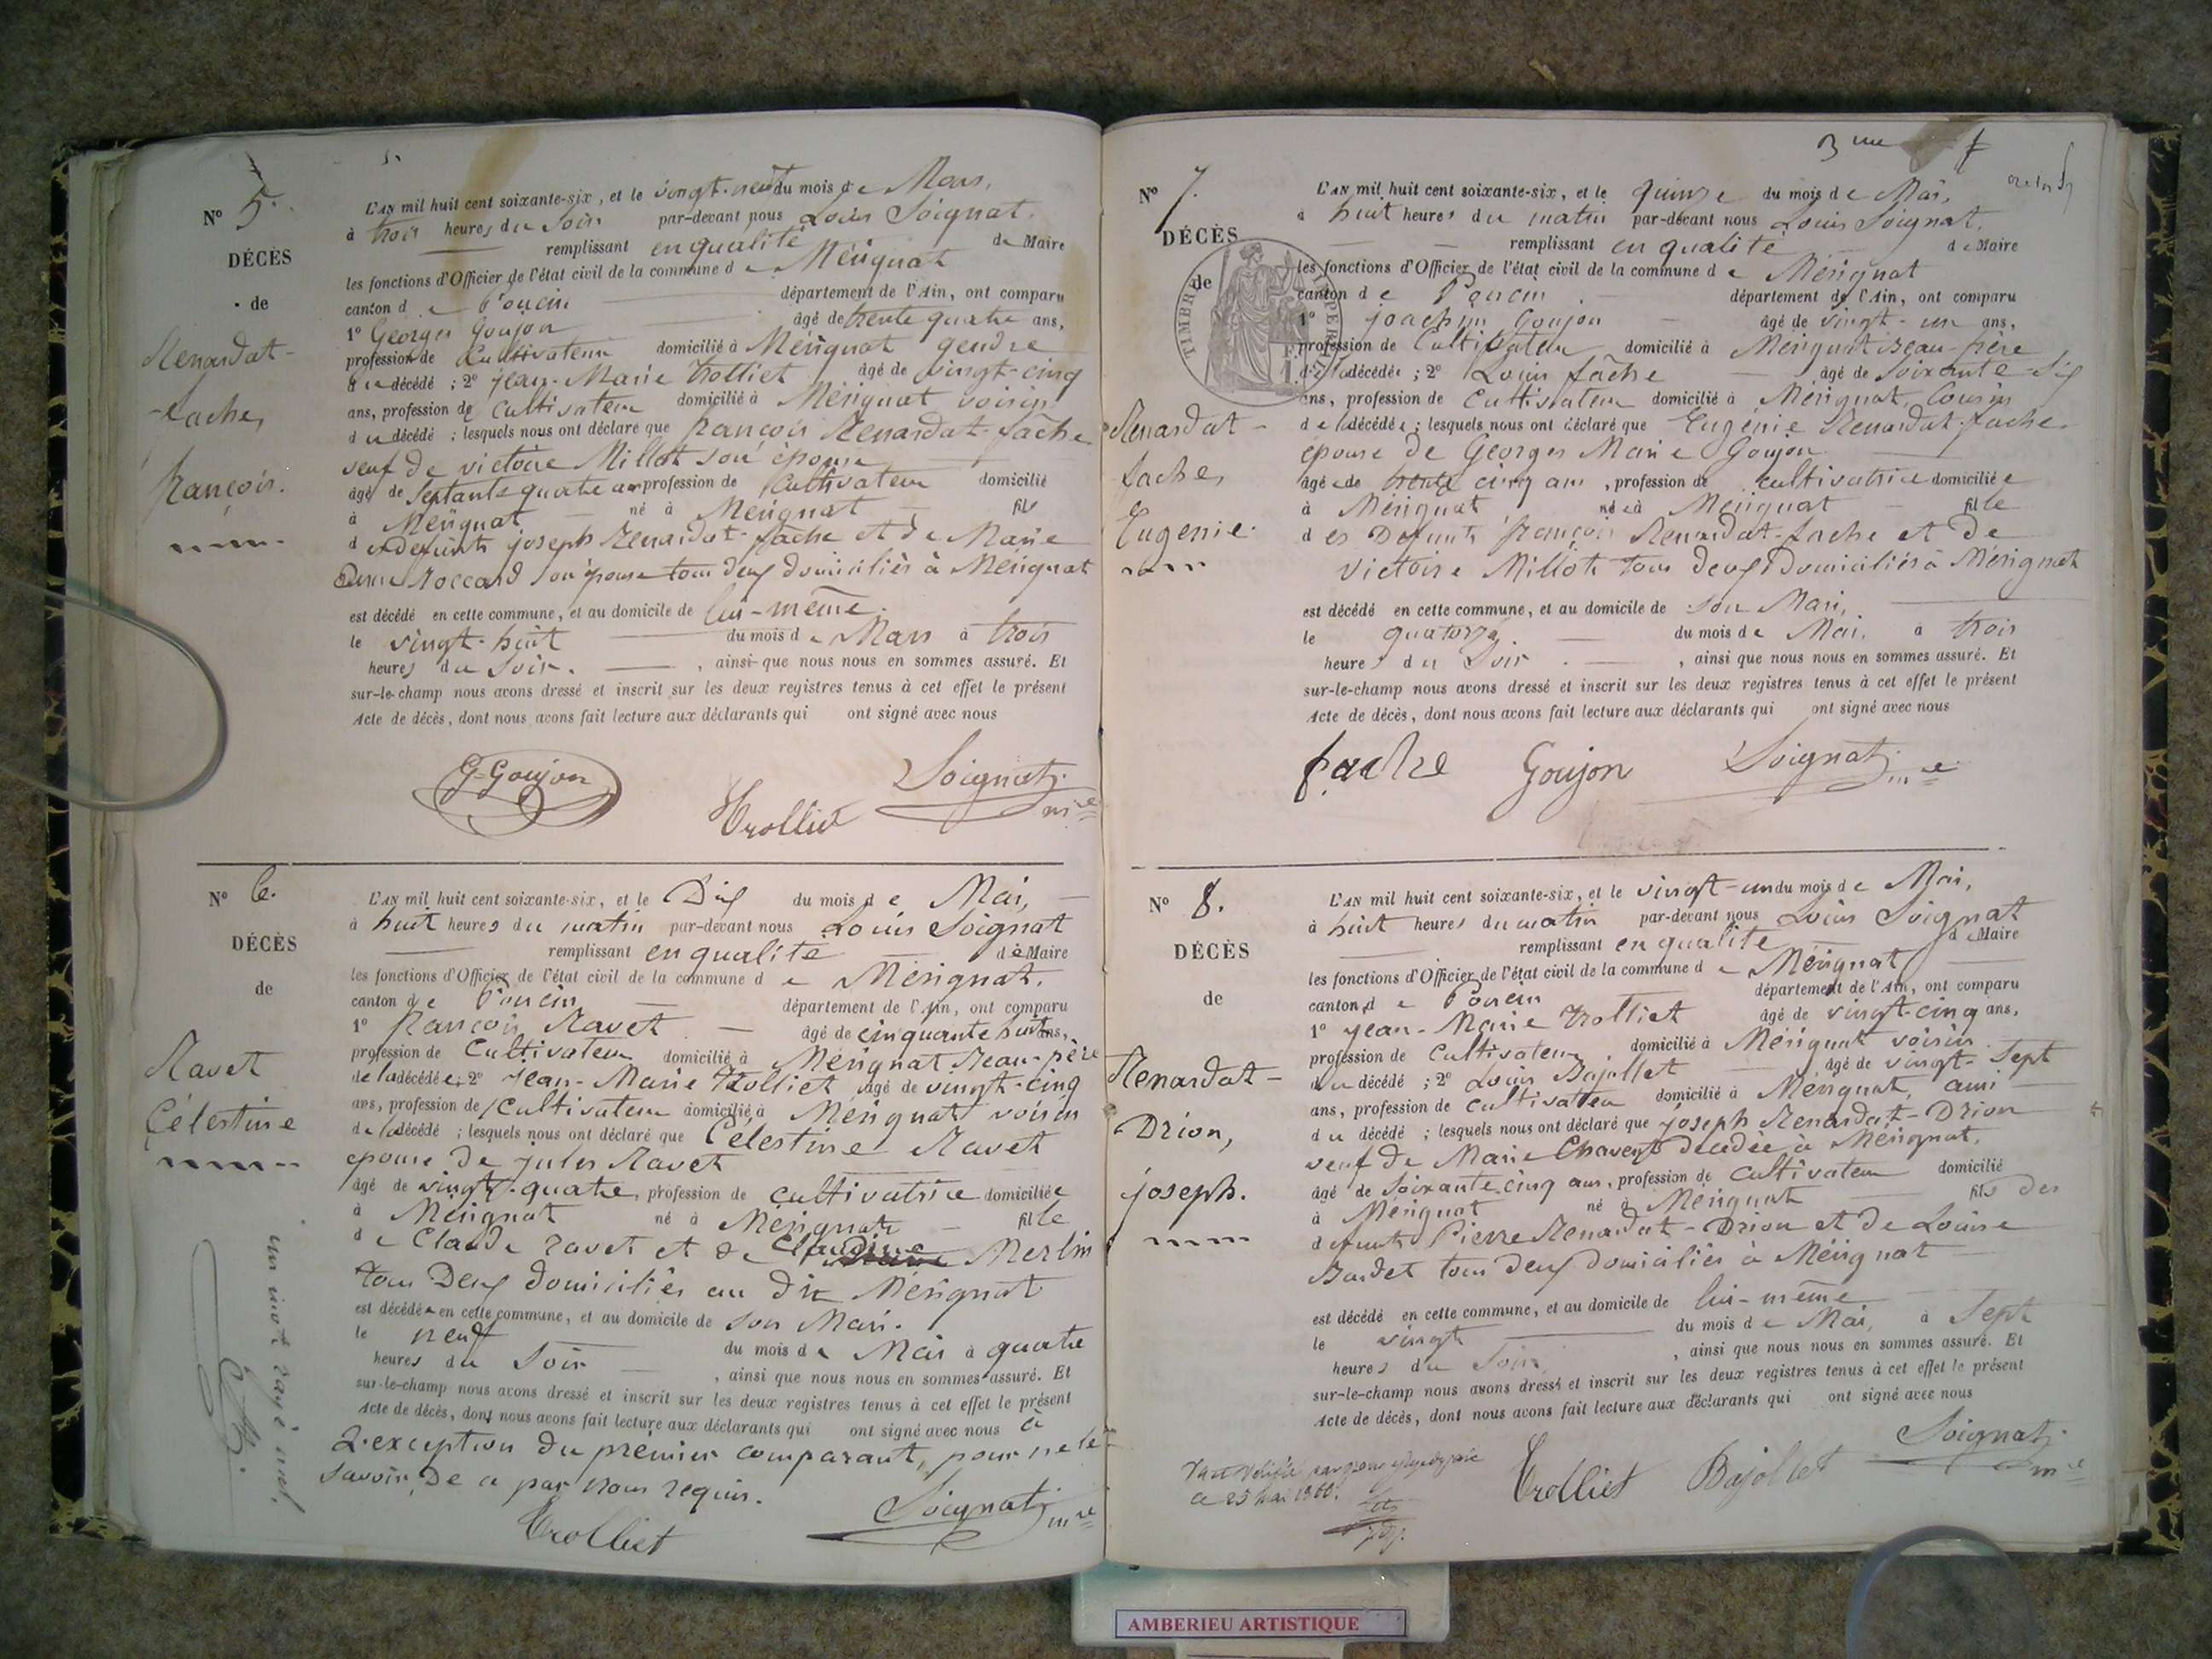 5.
Nº 5.
DÉCÈS
de
Renardat-
fache,
françois.
L'AN mil huit cent soixante-six, et le vingt-neuf du mois de Mars,
à trois heures du soir par-devant nous Louis Soignat,
remplissant en qualité de Maire
les fonctions d'Officier de l'état civil de la commune de Mérignat
canton de Poncin département de l'Ain, ont comparu
1º Georges Goujon âgé de trente quatre ans,
profession de Cultivateur domicilié à Mérignat gendre
du décédé ; 2º jean-Marie Trolliet âgé de vingt-cinq
ans, profession de Cultivateur domicilié à Mérignat voisin
du décédé ; lesquels nous ont déclaré que françois Renardat-fache
veuf de victoire Millot son épouse
âgé de septante quatre ans profession de Cultivateur domicilié
à Mérignat né à Mérignat fils
des defunts joseph Renardat-fache et de Marie
Roccard son épouse tous deux domiciliés à Mérignat
est décédé en cette commune, et au domicile de lui-même.
le vingt-huit du mois de Mars à trois
heures du soir. , ainsi que nous nous en sommes assuré. Et
sur-le-champ nous avons dressé et inscrit sur les deux registres tenus à cet effet le présent
Acte de décès, dont nous avons fait lecture aux déclarants qui ont signé avec nous
G-Goujon Trolliet Soignat, mre
Nº 6.
DÉCÈS
de
Ravet
Célestine
L'AN mil huit cent soixante-six, et le Dix du mois de Mai,
à huit heures du matin par-devant nous Louis Soignat
remplissant en qualité de Maire
les fonctions d'Officier de l'état civil de la commune de Mérignat,
canton de Poncin département de l'Ain, ont comparu
1º françois Ravet âgé de cinquante huit ans,
profession de Cultivateur domicilié à Mérignat Beau-père
de la décédée ; 2º Jean-Marie Trolliet âgé de vingt-cinq
ans, profession de Cultivateur domicilié à Mérignat voisin
de la décédé ; lesquels nous ont déclaré que Célestine Ravet
epouse de Jules Ravet
âgé de vingt-quatre, profession de cultivatrice domiciliée
à Mérignat né à Mérignat fille
de Claude ravet et de Claudine Merlin
tous Deux domiciliés au dit Mérignat
est décédée en cette commune, et au domicile de son Mari.
le neuf du mois de Mai à quatre
heures du soir , ainsi que nous nous en sommes assuré. Et
sur-le-champ nous avons dressé et inscrit sur les deux registres tenus à cet effet le présent
Acte de décès, dont nous avons fait lecture aux déclarants qui ont signé avec nous à
L'exception du premier comparant, pour ne le
savoir, De ce par nous requis.
Trolliet Soignat, mre
un mot rayé nul.
3me f
Nº 7.
DÉCÈS
de
TIMBRE IMPÉRIAL
Renardat-
fache,
Eugenie.
L'AN mil huit cent soixante-six, et le quinze du mois de Mai,
à huit heures du matin par-devant nous Louis Soignat,
remplissant en qualité de Maire
les fonctions d'Officier de l'état civil de la commune de Mérignat
canton de Poncin département de l'Ain, ont comparu
1º joachim Goujon âgé de vingt-un ans,
profession de Cultivateur domicilié à Mérignat Beau-frère
de la décédée ; 2º Louis fache âgé de soixante-six
ans, profession de Cultivateur domicilié à Mérignat, Cousin
de la décédée ; lesquels nous ont déclaré que Eugénie Renardat-fache
épouse de Georges Marie Goujon
âgée de trente cinq ans, profession de cultivatrice domiciliée
à Mérignat née à Mérignat fille
des Defunts françois Renardat-fache et de
victoire Millot tous deux Domiciliés à Mérignat
est décédé en cette commune, et au domicile de son Mari,
le quatorze. du mois de Mai, à trois
heures du Soir , ainsi que nous nous en sommes assuré. Et
sur-le-champ nous avons dressé et inscrit sur les deux registres tenus à cet effet le présent
Acte de décès, dont nous avons fait lecture aux déclarants qui ont signé avec nous
fache Goujon Soignat, mre
Nº 8.
DÉCÈS
de
Renardat-
Drion,
joseph.
L'AN mil huit cent soixante-six, et le vingt-un du mois de Mai,
à huit heures du matin par-devant nous Louis Soignat
remplissant en qualité de Maire
les fonctions d'Officier de l'état civil de la commune de Mérignat
canton de Poncin département de l'Ain, ont comparu
1º Jean-Marie Trolliet âgé de vingt-cinq ans,
profession de Cultivateur domicilié à Mérignat voisin
du décédé ; 2º Louis Bajollet âgé de vingt-sept
ans, profession de Cultivateur domicilié à Mérignat, ami
du décédé ; lesquels nous ont déclaré que joseph Renardat-Drion
veuf de Marie décédée à Mérignat,
âgé de soixante-cinq ans, profession de Cultivateur domicilié
à Mérignat né à Mérignat fils des
defunts Pierre Renardat-Drion et de Louise
Bardet tous deux domiciliés à Mérignat
est décédé en cette commune, et au domicile de lui-même
le vingt du mois de Mai, à Sept
heures du soir , ainsi que nous nous en sommes assuré. Et
sur-le-champ nous avons dressé et inscrit sur les deux registres tenus à cet effet le présent
Acte de décès, dont nous avons fait lecture aux déclarants qui ont signé avec nous
Trolliet Bajollet Soignat, mre
AMBERIEU ARTISTIQUE